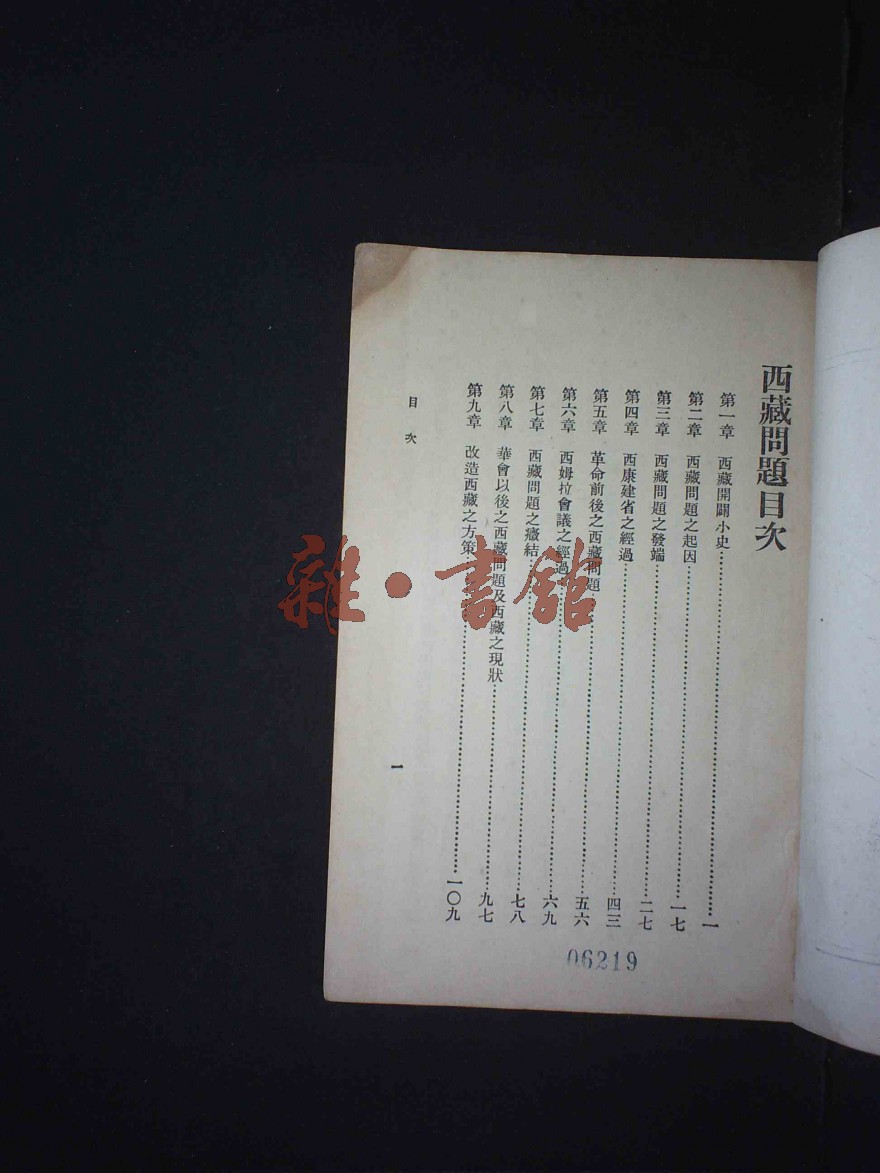 西藏問題目次
第一章 西藏開闢小史……………一
第二章 西藏問題之起因……………一七
第三章 西藏問題之發端……………二七
第四章 西康建省之經過……………四三
第五章 革命前後之西藏問題……………五六
第六章 西姆拉會議之經過……………六九
第七章 西藏問題之癥結……………七八
第八章 華會以後之西藏問題及西藏之現狀……………九七
第九章 改造西藏之方策……………一〇九
目次
一
06219
雜·書館